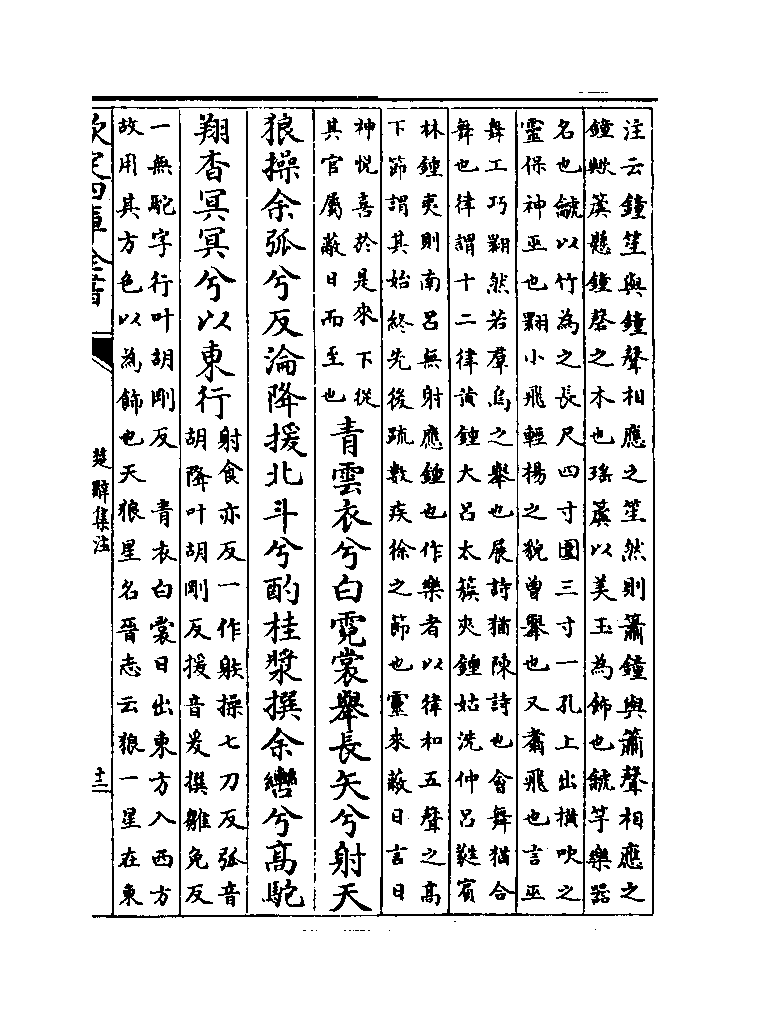 注云鐘笙與鐘聲相應之笙然則簫鐘與簫聲相應之
鐘歟簴懸鐘磬之木也瑤簴以美玉為飾也鷈竽樂器
名也鷈以竹為之長尺四寸圍三寸一孔上出横吹之
靈保神巫也翾小飛輕揚之貌曾舉也又翥飛也言巫
舞工巧翾然若羣鳥之舉也展詩猶陳詩也會舞猶合
舞也律謂十二律黄鍾大呂太簇夾鍾姑洗仲呂蕤賓
林鍾夷則南呂無射應鍾也作樂者以律和五聲之高
下節謂其始終先後疏數疾徐之節也靈來蔽日言日
神悦喜於是來下從
其官屬蔽日而至也
青雲衣兮白霓裳舉長矢兮射天
狼操余弧兮反淪降援北斗兮酌桂漿撰余轡兮高駝
翔杳冥冥兮以東行
射食亦反一作躲操七刀反弧音
胡降叶胡剛反援音爰撰雛免反
一無駝字行叶胡剛反　青衣白裳日出東方入西方
故用其方色以為飾也天狼星名晋志云狼一星在東
欽定四庫全書
楚辭集注
十二